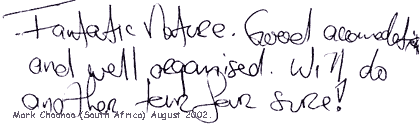 Fantastic Nature. Good accomodation
and well organised. Will do
another tour for sure!
Mark Choonoo (South Africa) August 2002.